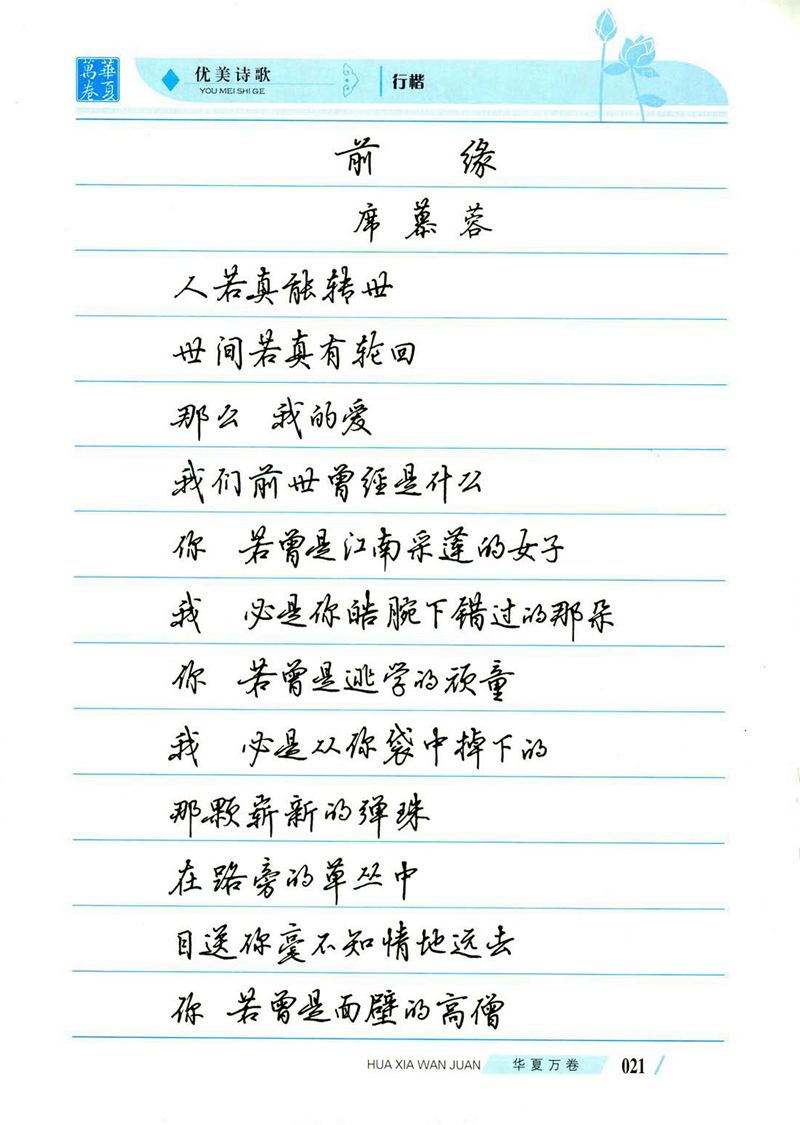 華夏萬卷
优美诗歌
YOU MEI SHI GE
行楷
前 缘
席慕蓉
人若真能转世
世间若真有轮回
那么 我的爱
我们前世曾经是什么
你 若曾是江南采莲的女子
我 必是你皓腕下错过的那朵
你 若曾是逃学的顽童
我 必是从你袋中掉下的
那颗崭新的弹珠
在路旁的草丛中
目送你毫不知情地远去
你 若曾是面壁的高僧
HUA XIA WAN JUAN 华夏万卷 021